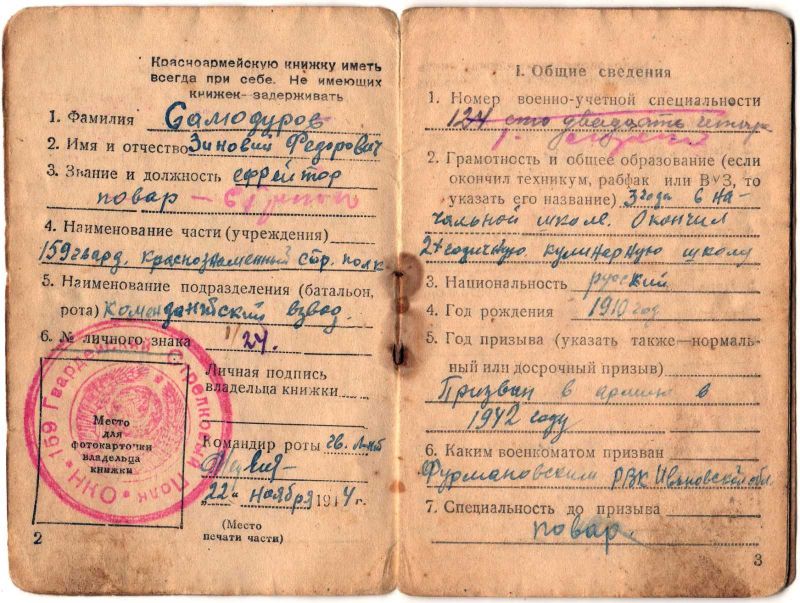 Красноармейскую книжку иметь
всегда при себе. Не имеющих
книжек-задерживать
1. Фамилия Самодуров
2. Имя и отчество Зиновий Федорович
3. Звание и должность ефрейтор
повар
4. Наименование части (учреждения)
159 гвард. Краснознаменный стр. полк
5. Наименование подразделения (батальон,
рота) Комендантский взвод.
6. № личного знака
Личная подпись
владельца книжки
Место
для
фотокарточки
владельца
книжки
159 Гвардейский Стрелковый Полк
Командир роты гв. л-нт
22 ноября 1944 г.
(Место
печати части)
2
I. Общие сведения
1. Номер военно-учетной специальности
124 сто двадцать четыре
2. Грамотность и общее образование (если
окончил техникум, рабфак или ВУЗ, то
указать его название) 3 года в на-
чальной школе. Окончил
2х годичную кулинарную школу
3. Национальность русский
4. Год рождения 1910 год
5. Год призыва (указать также—нормаль-
ный или досрочный призыв)
Призван в армию в
1942 году
6. Каким военкоматом призван
Фурмановским РВК Ивановской обл.
7. Специальность до призыва
повар.
3